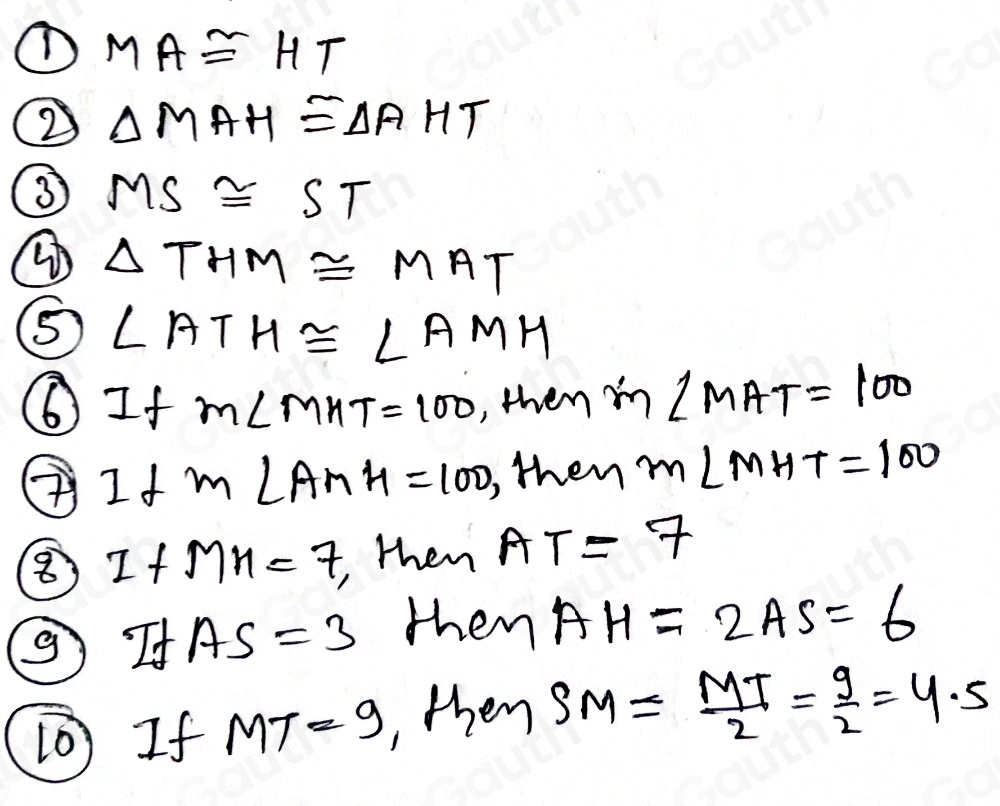 ① MA ≅ HT
② △MAH ≅ △AHT
③ MS ≅ ST
④ △ THM ≅ MAT
⑤ ∠ATH ≅ ∠AMH
⑥ If m∠MHT = 100, then m∠MAT = 100
⑦ If m∠AMH = 100, then m∠MHT = 100
⑧ If MH = 7, then AT = 7
⑨ If AS = 3 then AH = 2AS = 6
⑩ If MT = 9, then SM = MT/2 = 9/2 = 4.5